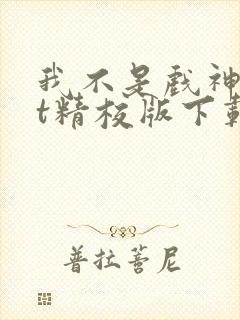 我不是戏神
t精校版下载
普拉蒈尼